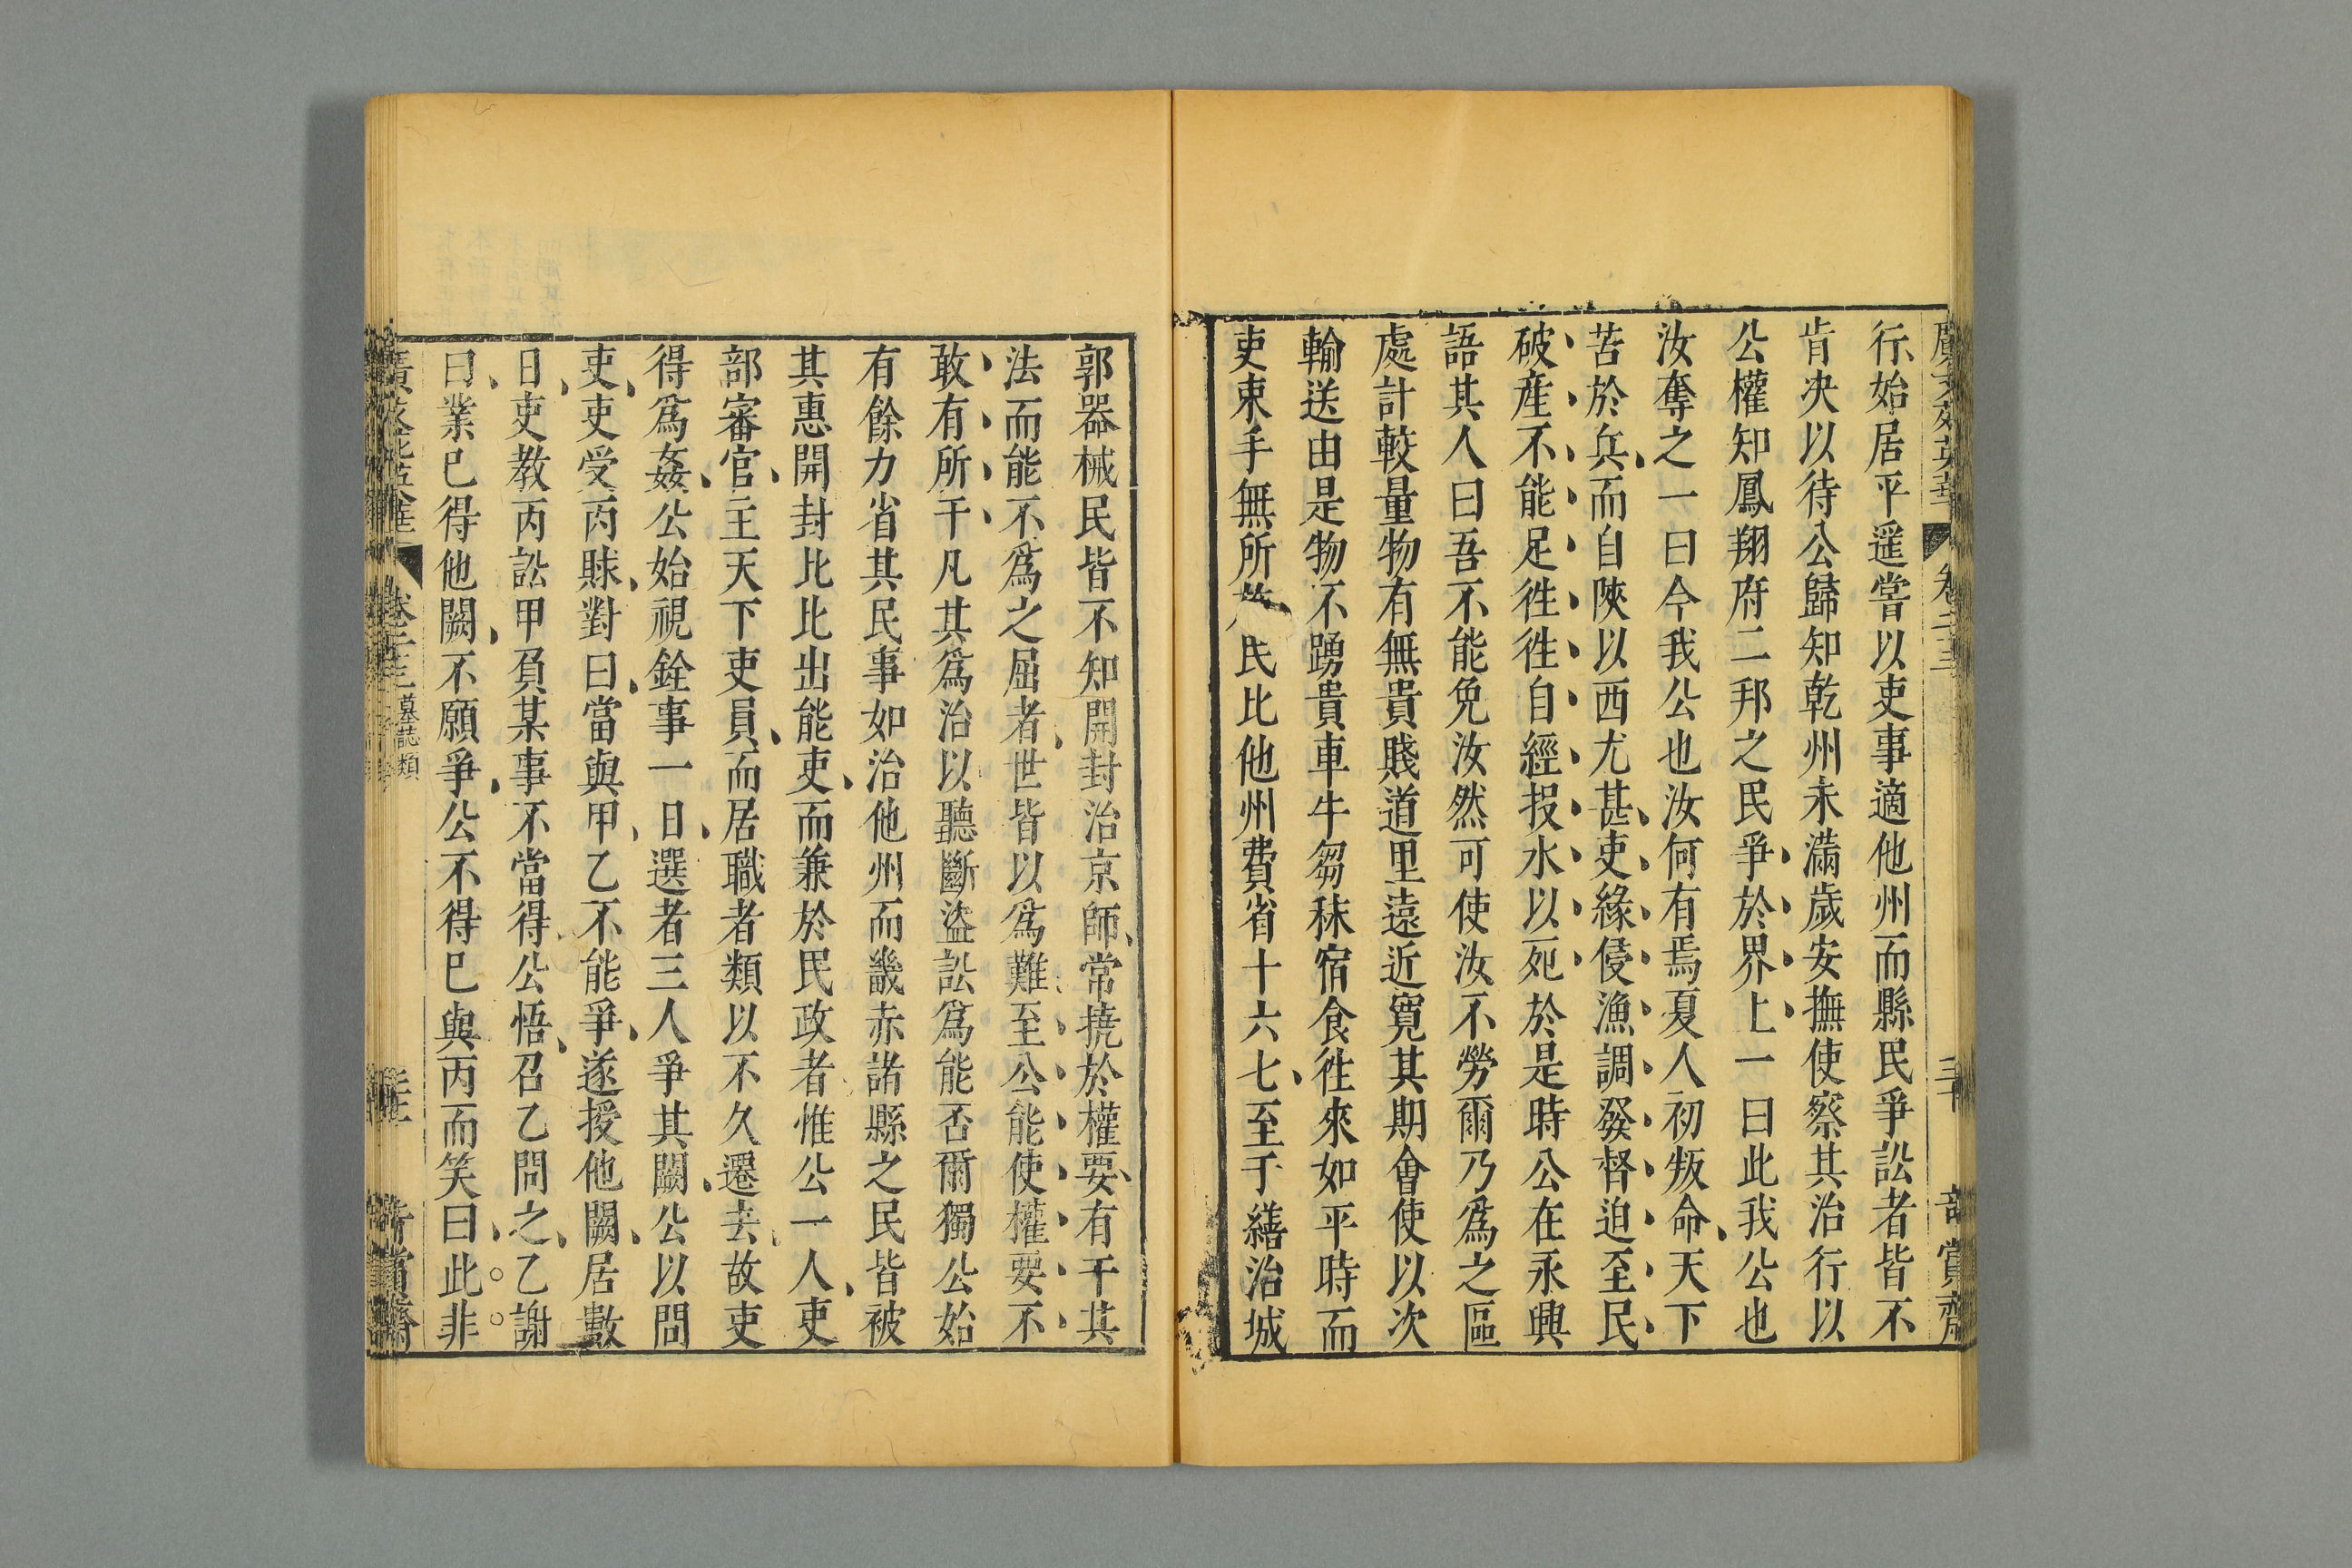 行始居平遥嘗以吏事適他州而縣民爭訟者皆不
肯決以待公歸知乾州未滿歲安撫使察其治行以
公權知鳳翔府二邦之民爭於界上一曰此我公也
汝奪之一曰今我公也汝何有焉夏人初叛命天下
苦於兵而自陝以西尤甚吏緣侵漁調發督迫至民
破產不能足徃徃自經投水以死於是時公在永興
語其人曰吾不能免汝然可使汝不勞爾乃爲之區
處計較量物有無貴賤道里遠近寬其期會使以次
輸送由是物不踴貴車牛芻秣宿食徃來如平時而
吏束手無所 民比他州費省十六七至于繕治城
郭器械民皆不知開封治京師常撓於權要有干其
法而能不爲之屈者世皆以爲難至公能使權要不
敢有所干凡其爲治以聽斷盜訟爲能否爾獨公始
有餘力省其民事如治他州而畿赤諸縣之民皆被
其惠開封比比出能吏而兼於民政者惟公一人吏
部審官主天下吏員而居職者類以不久遷去故吏
得爲姦公始視銓事一日選者三人爭其闕公以問
吏吏受丙賕對曰當與甲乙不能爭遂授他闕居數
日吏教丙訟甲負某事不當得公悟召乙問之乙謝
曰業已得他闕不願爭公不得已與丙而笑曰此非
卷二十三 墓誌類